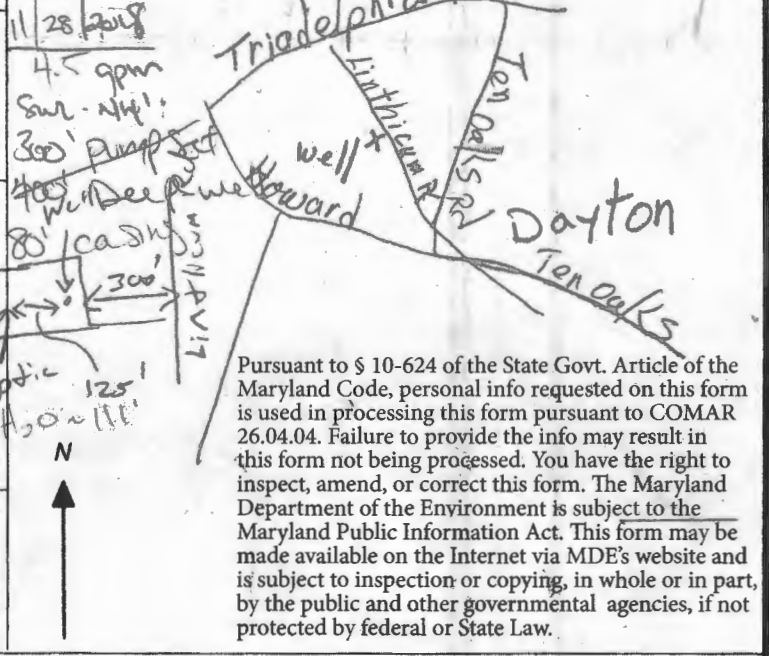 11/28/2018
4.5 gpm
300' pump set
400' well Deep
80' casing
300'
Linthicum
125'
Triadelphia
Linthicum R
Ten Oaks Rd
well +
Howard
Dayton
Ten Oaks
N
Pursuant to § 10-624 of the State Govt. Article of the
Maryland Code, personal info requested on this form
is used in processing this form pursuant to COMAR
26.04.04. Failure to provide the info may result in
this form not being processed. You have the right to
inspect, amend, or correct this form. The Maryland
Department of the Environment is subject to the
Maryland Public Information Act. This form may be
made available on the Internet via MDE's website and
is subject to inspection or copying, in whole or in part,
by the public and other governmental agencies, if not
protected by federal or State Law.